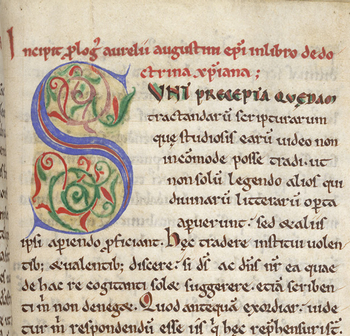 Incipit plog᷒ aurelii augustini epi in libro de do
ctrina xpiana ;
SVNT PRECEPTA QVEDAM
tractandarū scripturarum
que studiosis earū video non
incōmode posse tradi. ut
non solū legendo alios qui
diuinarū litterarū opta
aperuerunt. sed & aliis
ipsi aperiendo pficiant. Hec tradere institui uolen
tib; & ualentib; discere. si ds̄ ac dn̄s nr̄ ea quae
de hac re cogitanti solet suggerere. etiā scriben
ti m̄ non deneget. Quod antequā exordiar. uide
tur m̄ respondendū esse iis q hec rephensuri st̄.